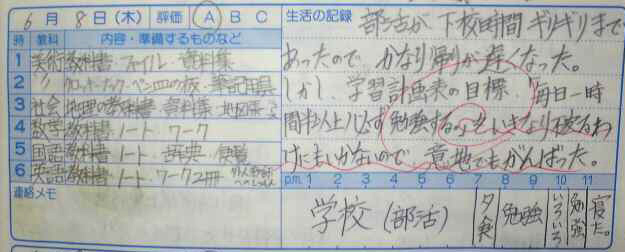 6月8日(木) 評価 A B C
時 教科 内容・準備するものなど
1 美術 教科書・ファイル・資料集
2 〃 クロッキーブック・ペン・皿の板・筆記用具
3 社会 地理の教科書・資料集・地図帳・ノ
4 数学 教科書・ノート・ワーク
5 国語 教科書・ノート・辞典・便覧
6 英語 教科書・ノート・ワーク2冊
連絡メモ
生活の記録
部活が下校時間ギリギリまで
あったので、かなり帰りが遅くなった。
しかし、学習計画表の目標、「毎日一時
間半以上必ず勉強する。」をいきなり破るわ
けにもいかないので、意地でもがんばった。
p.m. 1 2 3 4 5 6 7 8 9 10 11
学校(部活) 夕食 勉強 いろいろ 勉強 寝た。